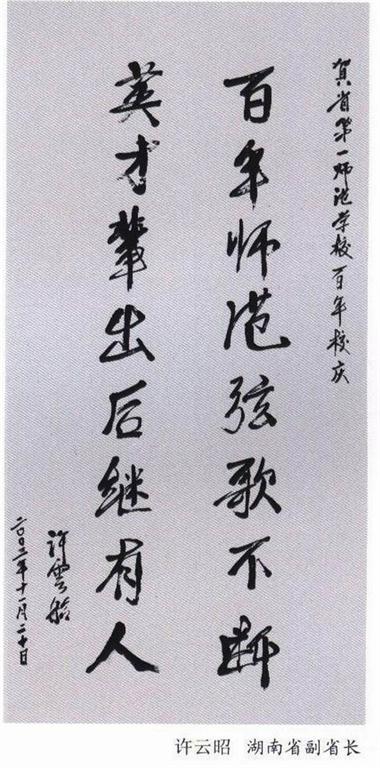 贺省第一师范学校百年校庆
百年师范弦歌不断
英才輩出后继有人
许雲昭
二〇〇二年十一月二十日
许云昭 湖南省副省长